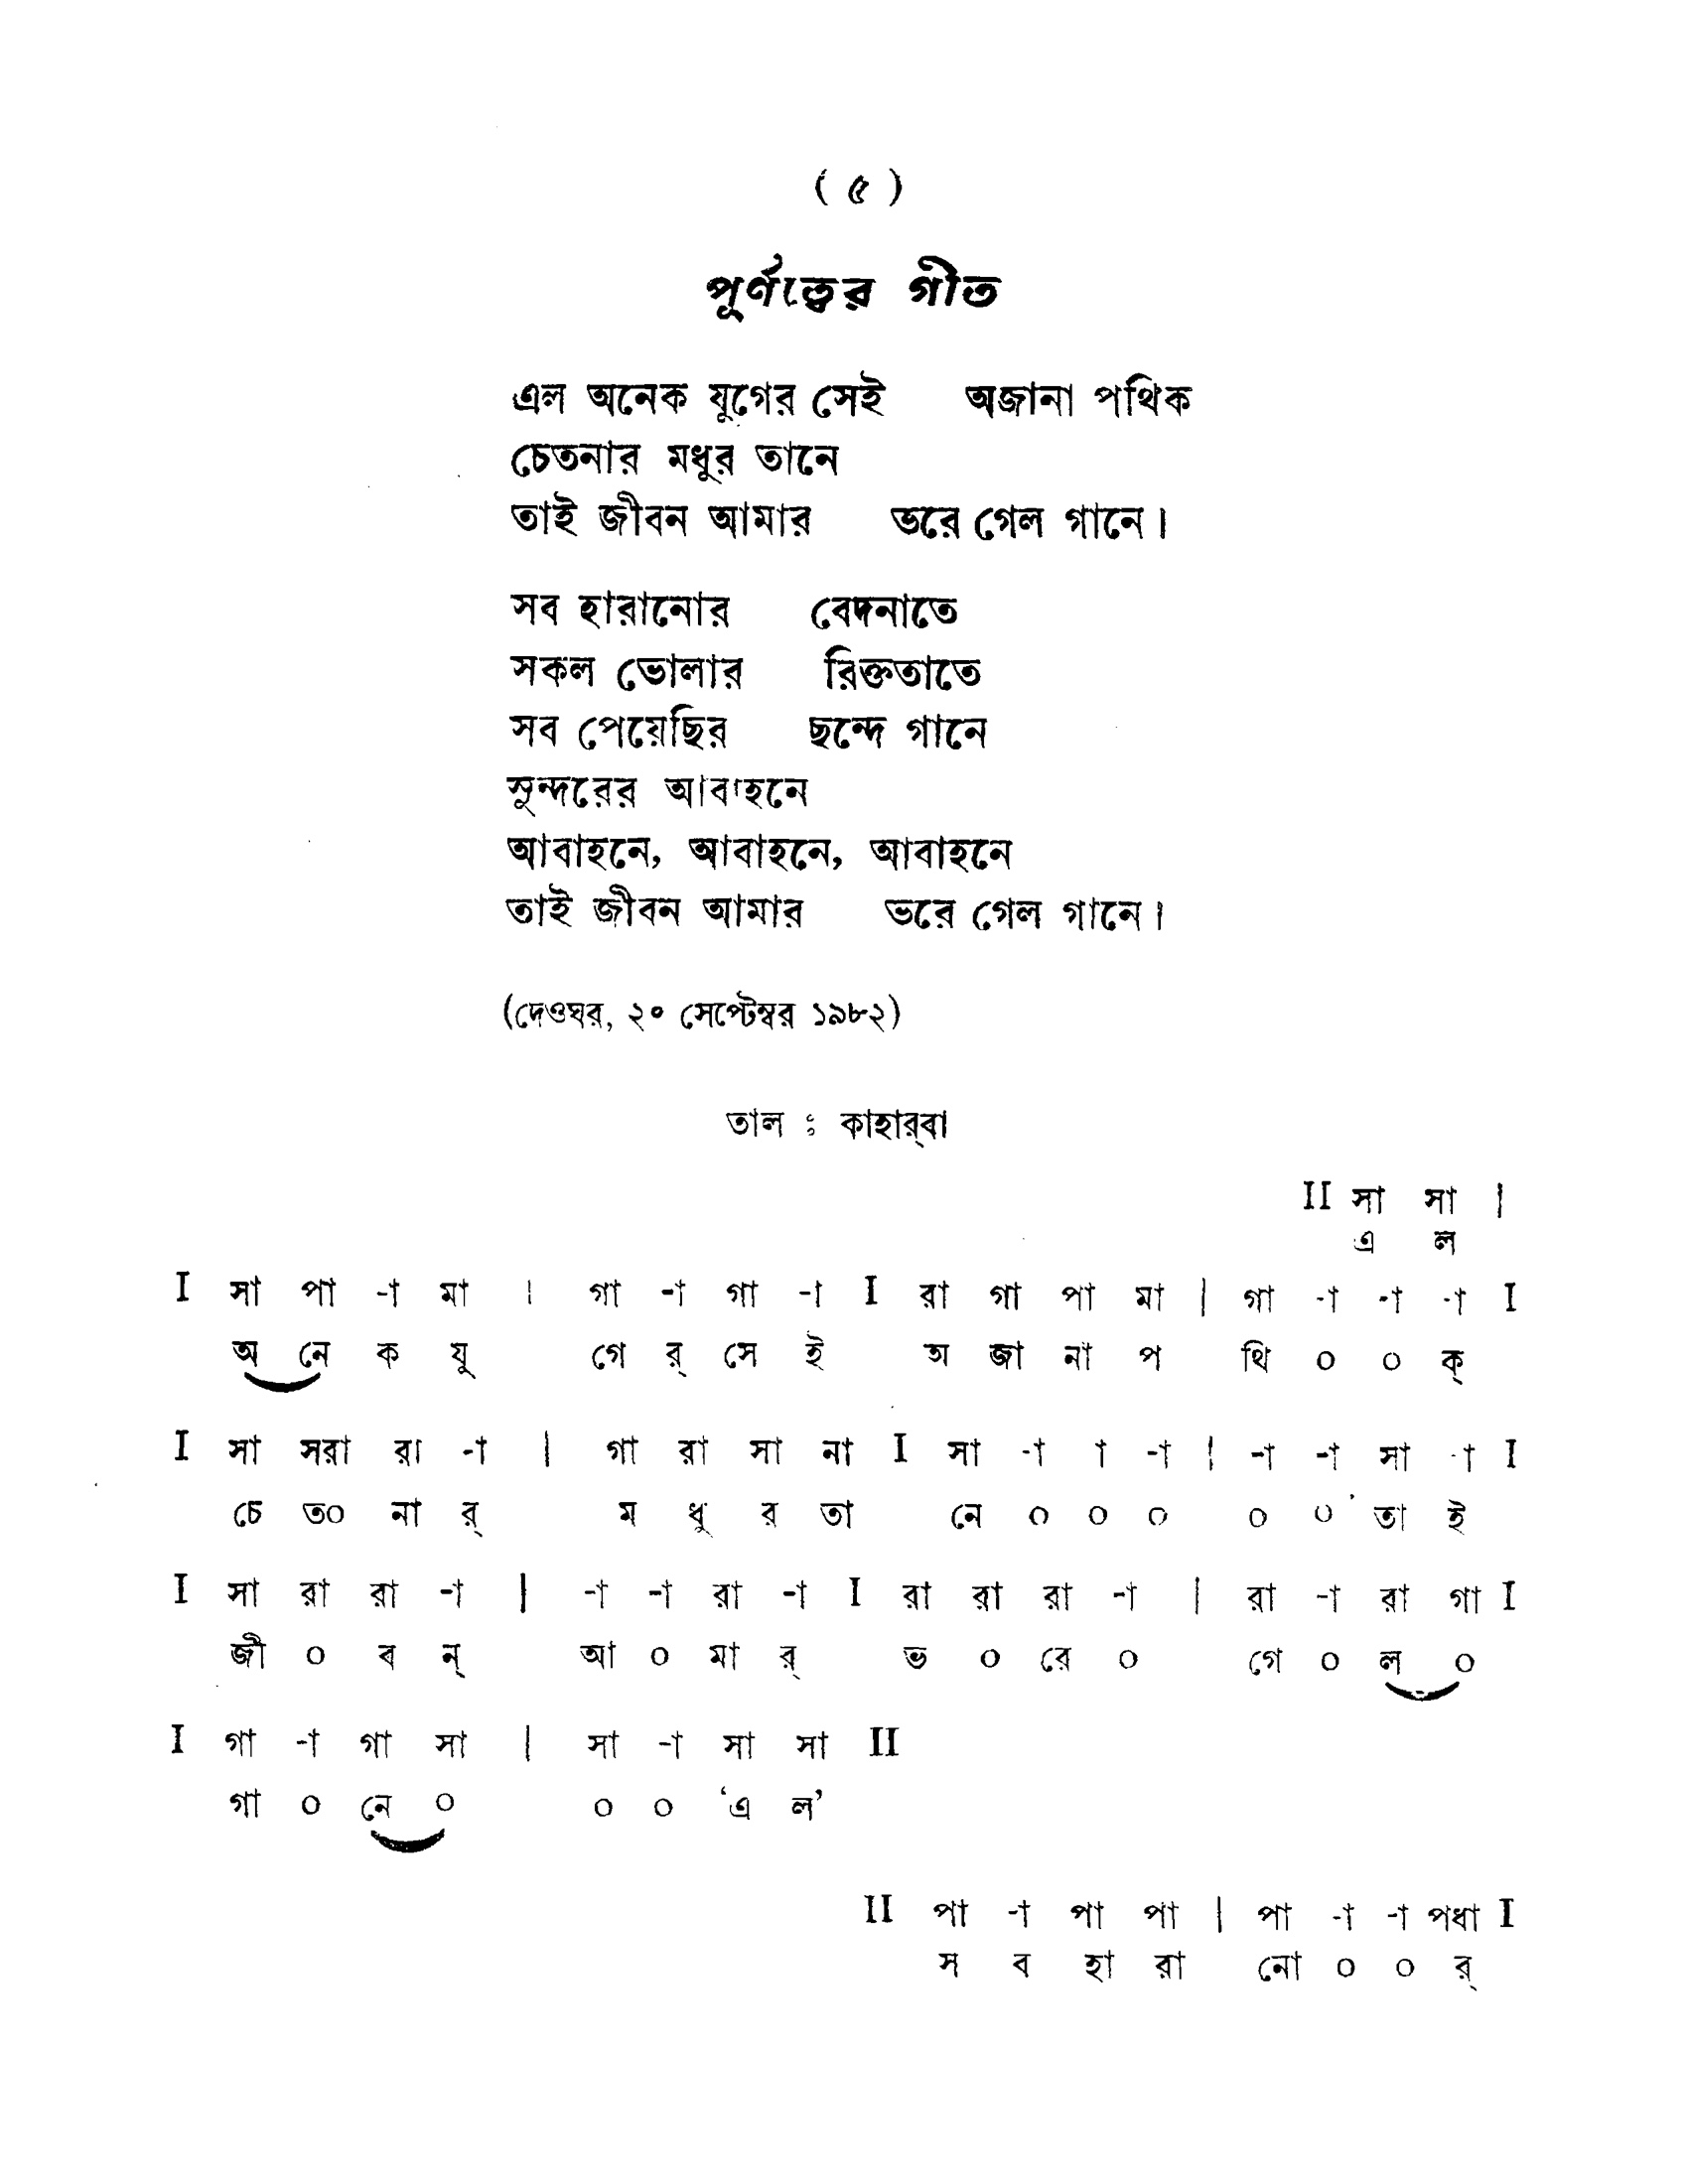 ( ৫ )
পূর্ণত্বের গীত
এল অনেক যুগের সেই অজানা পথিক
চেতনার মধুর তানে
তাই জীবন আমার ভরে গেল গানে।
সব হারানোর বেদনাতে
সকল ভোলার রিক্ততাতে
সব পেয়েছির ছন্দে গানে
সুন্দরের আবাহনে
আবাহনে, আবাহনে, আবাহনে
তাই জীবন আমার ভরে গেল গানে।
(দেওঘর, ২০ সেপ্টেম্বর ১৯৮২)
তাল ঃ কাহার্‌বা
II সা সা |
এ ল
I সা পা -া মা | গা -া গা -া I রা গা পা মা | গা -া -া -া I
অ নে ক যু গে র্ সে ই অ জা না প থি ০ ০ ক্
I সা সরা রা -া | গা রা সা না I সা -া া -া | -া -া সা -া I
চে ত০ না র্ ম ধু র তা নে ০ ০ ০ ০ ০ তা ই
I সা রা রা -া | -া -া রা -া I রা রা রা -া | রা -া রা গা I
জী ০ ব ন্ আ ০ মা র্ ভ ০ রে ০ গে ০ ল ০
I গা -া গা সা | সা -া সা সা II
গা ০ নে ০ ০ ০ ‘এ ল’
II পা -া পা পা | পা -া -া পধা I
স ব হা রা নো ০ ০ র্